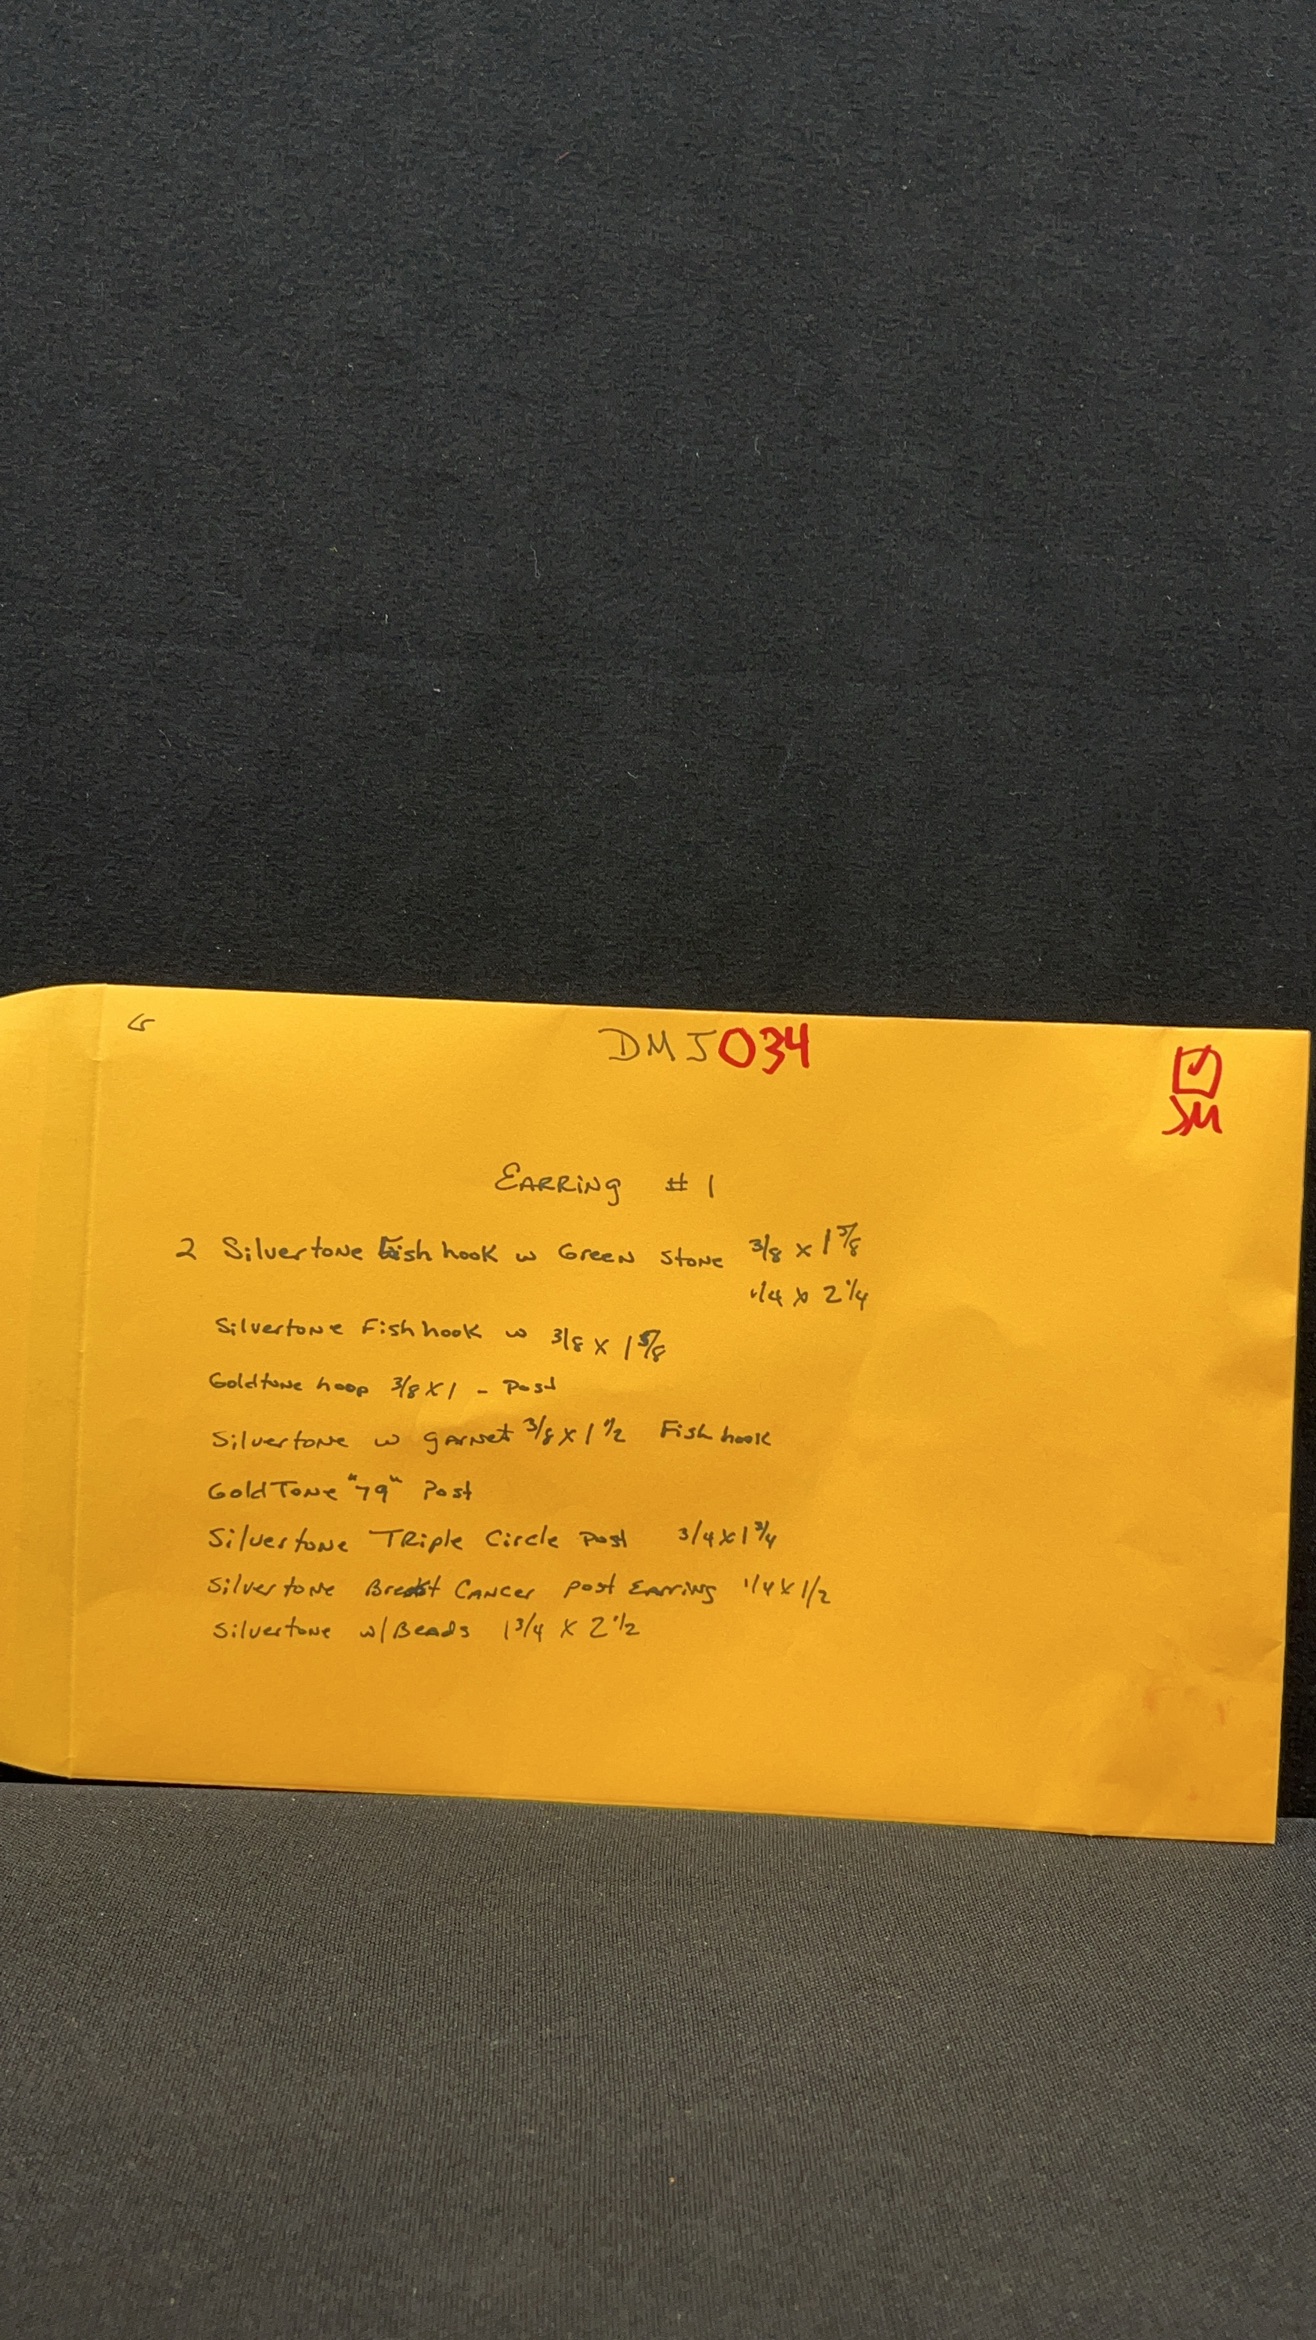 DMJ034
JM
EARRiNg # 1
2 Silvertone Fish hook w Green Stone 3/8 x 1 5/8
1/4 x 2 1/4
Silvertone Fish hook w 3/8 x 1 5/8
Goldtone hoop 3/8 x 1 - Post
Silvertone w garnet 3/8 x 1 1/2 Fish hook
Gold Tone "79" Post
Silvertone TRiple Circle Post 3/4 x 1 3/4
Silvertone Breast Cancer post Earring 1/4 x 1/2
Silvertone w/Beads 1 3/4 x 2 1/2